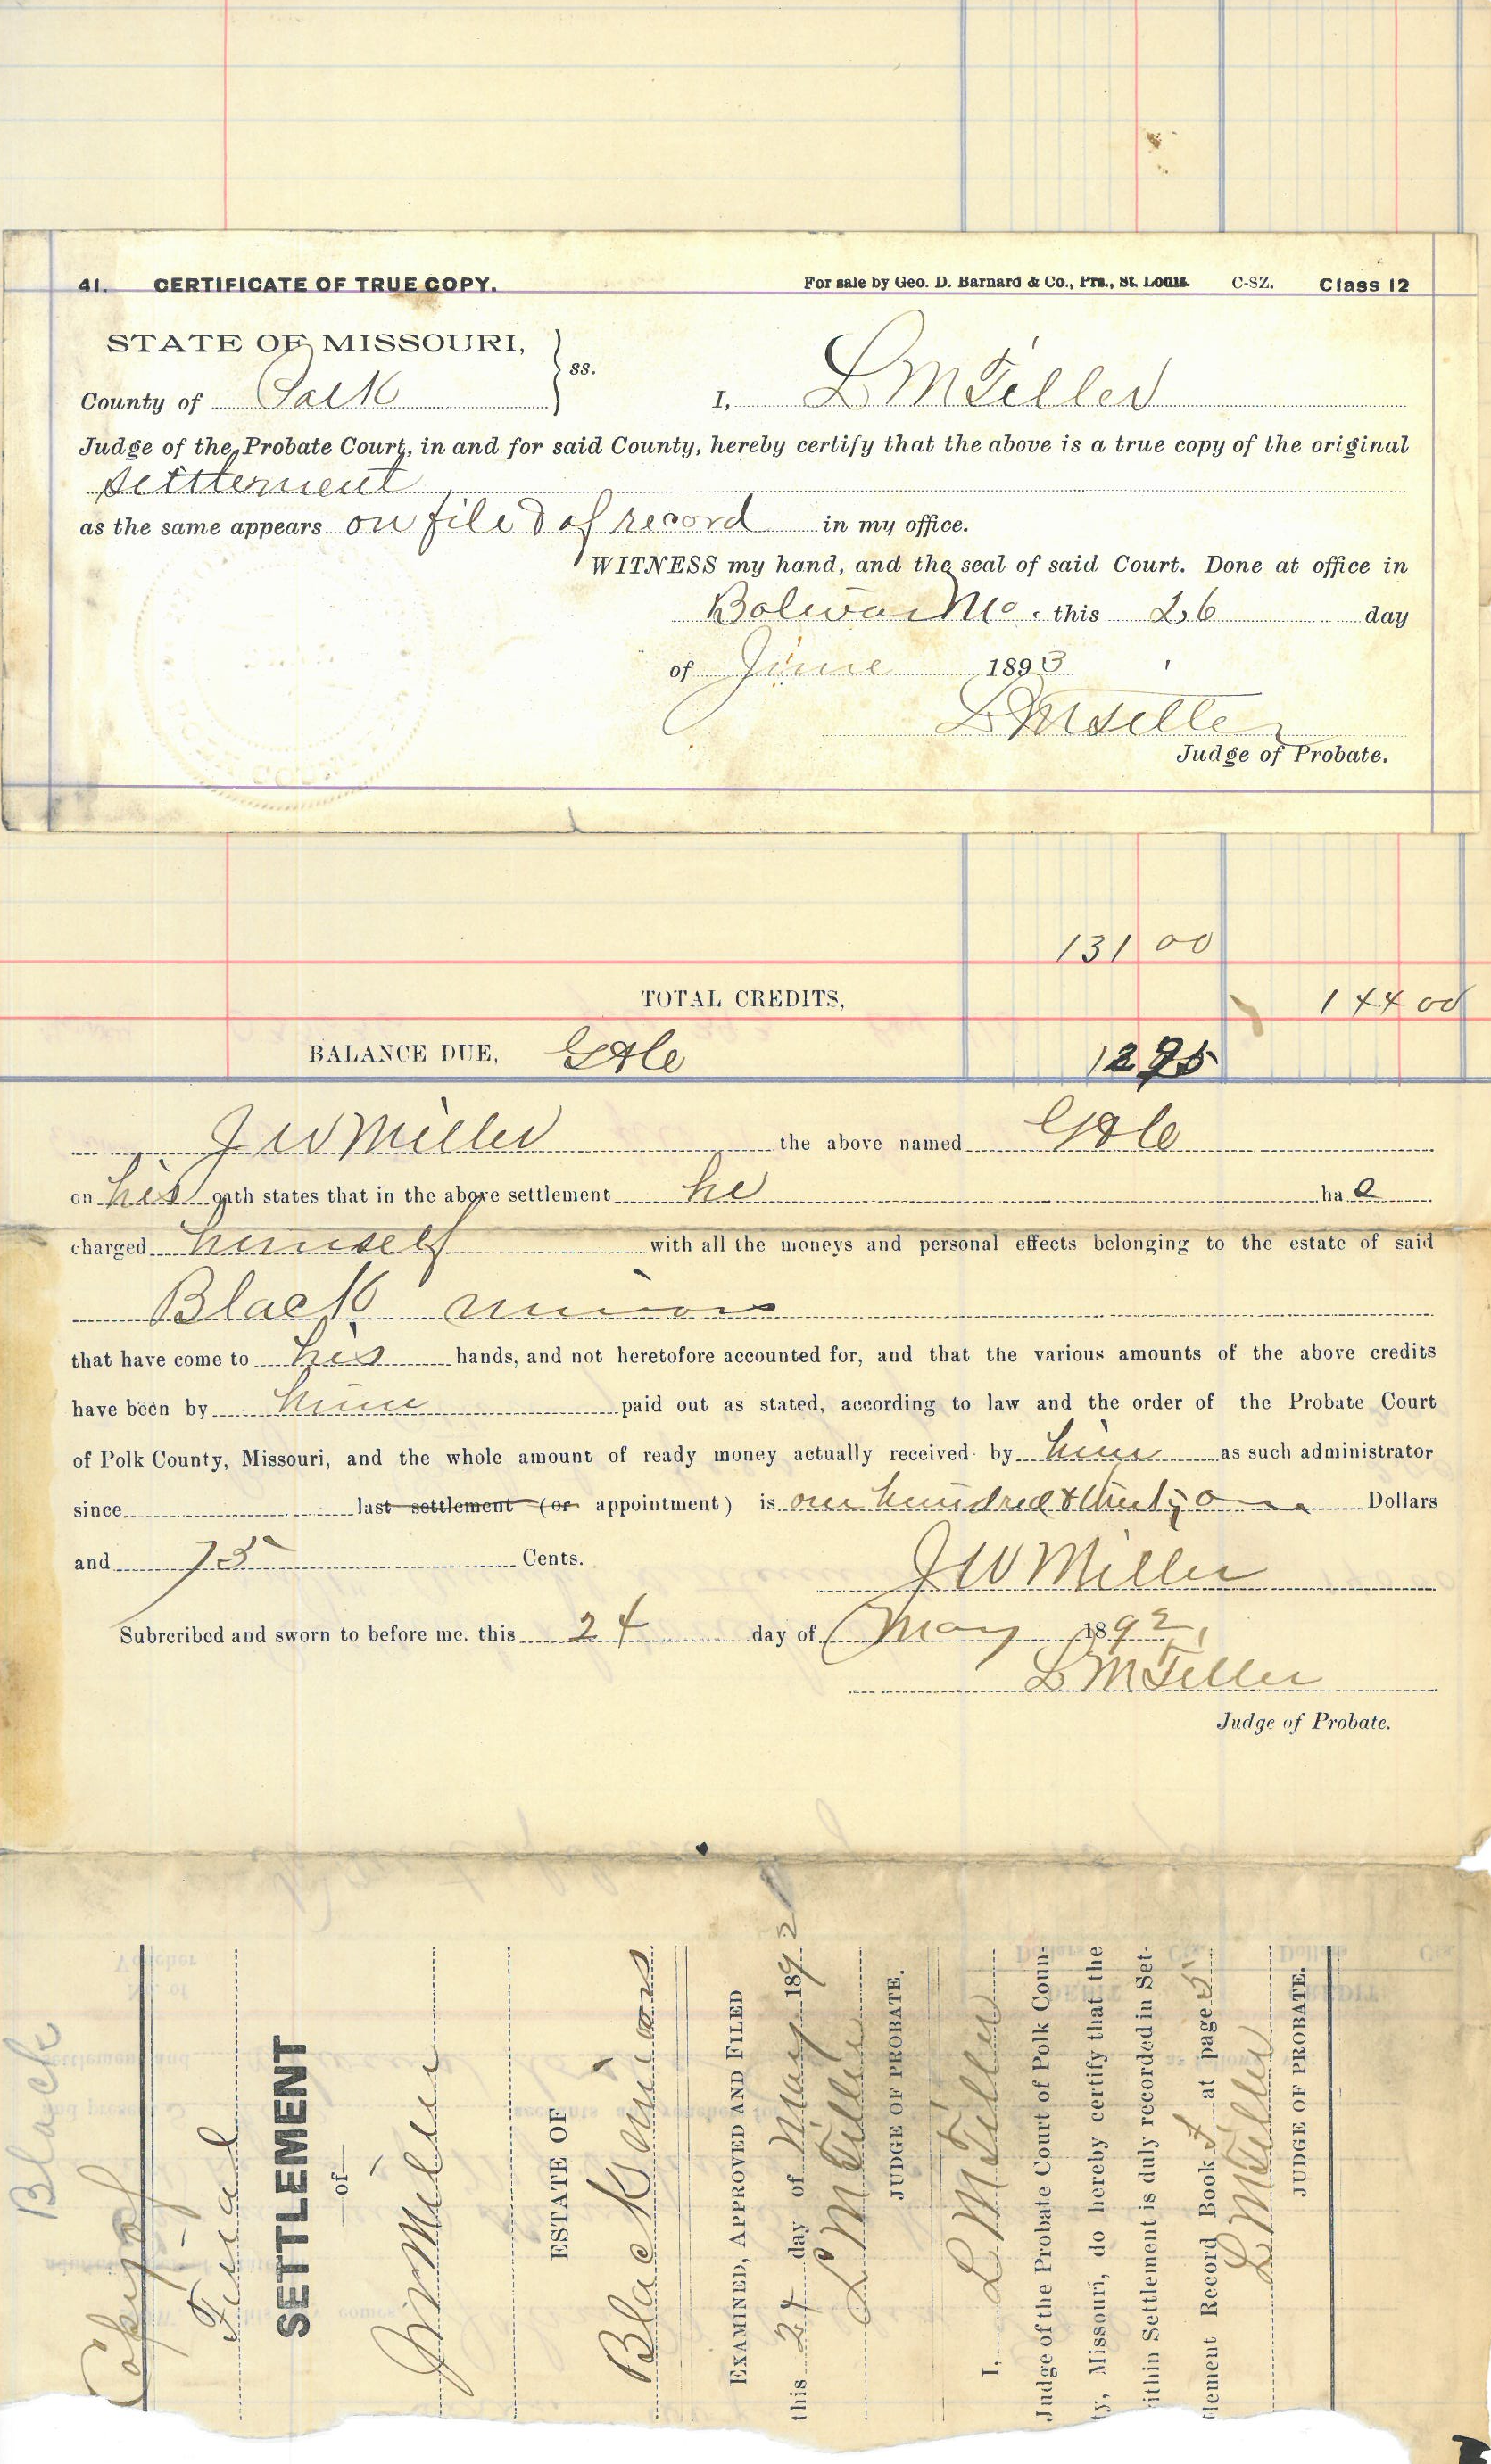 41. CERTIFICATE OF TRUE COPY. For sale by Geo. D. Barnard & Co., Prs., St. Louis. C-SZ. Class 12
STATE OF MISSOURI, ss.
County of Polk I, L M Tiller
Judge of the Probate Court, in and for said County, hereby certify that the above is a true copy of the original
settlement
as the same appears on file & of record in my office.
WITNESS my hand, and the seal of said Court. Done at office in
Bolivar Mo. this 26 day
of June 1893
L M Tiller
Judge of Probate.
131 00
TOTAL CREDITS, 144 00
BALANCE DUE, G & C 12 25
J W Miller the above named G & C
on his oath states that in the above settlement he has
charged himself with all the moneys and personal effects belonging to the estate of said
Black minors
that have come to his hands, and not heretofore accounted for, and that the various amounts of the above credits
have been by him paid out as stated, according to law and the order of the Probate Court
of Polk County, Missouri, and the whole amount of ready money actually received by him as such administrator
since last settlement (or appointment) is one hundred & thirty one Dollars
and 75 Cents.
J W Miller
Subrcribed and sworn to before me, this 24 day of May 1892,
L M Tiller
Judge of Probate.
Black
Copy of
Final
SETTLEMENT
of
J W Miller
ESTATE OF
Black minors
EXAMINED, APPROVED AND FILED
this 24 day of May 1892
L M Tiller
JUDGE OF PROBATE.
I, L M Tiller
Judge of the Probate Court of Polk Coun-
ty, Missouri, do hereby certify that the
ithin Settlement is duly recorded in Set-
tlement Record Book at page 5
L M Tiller
JUDGE OF PROBATE.